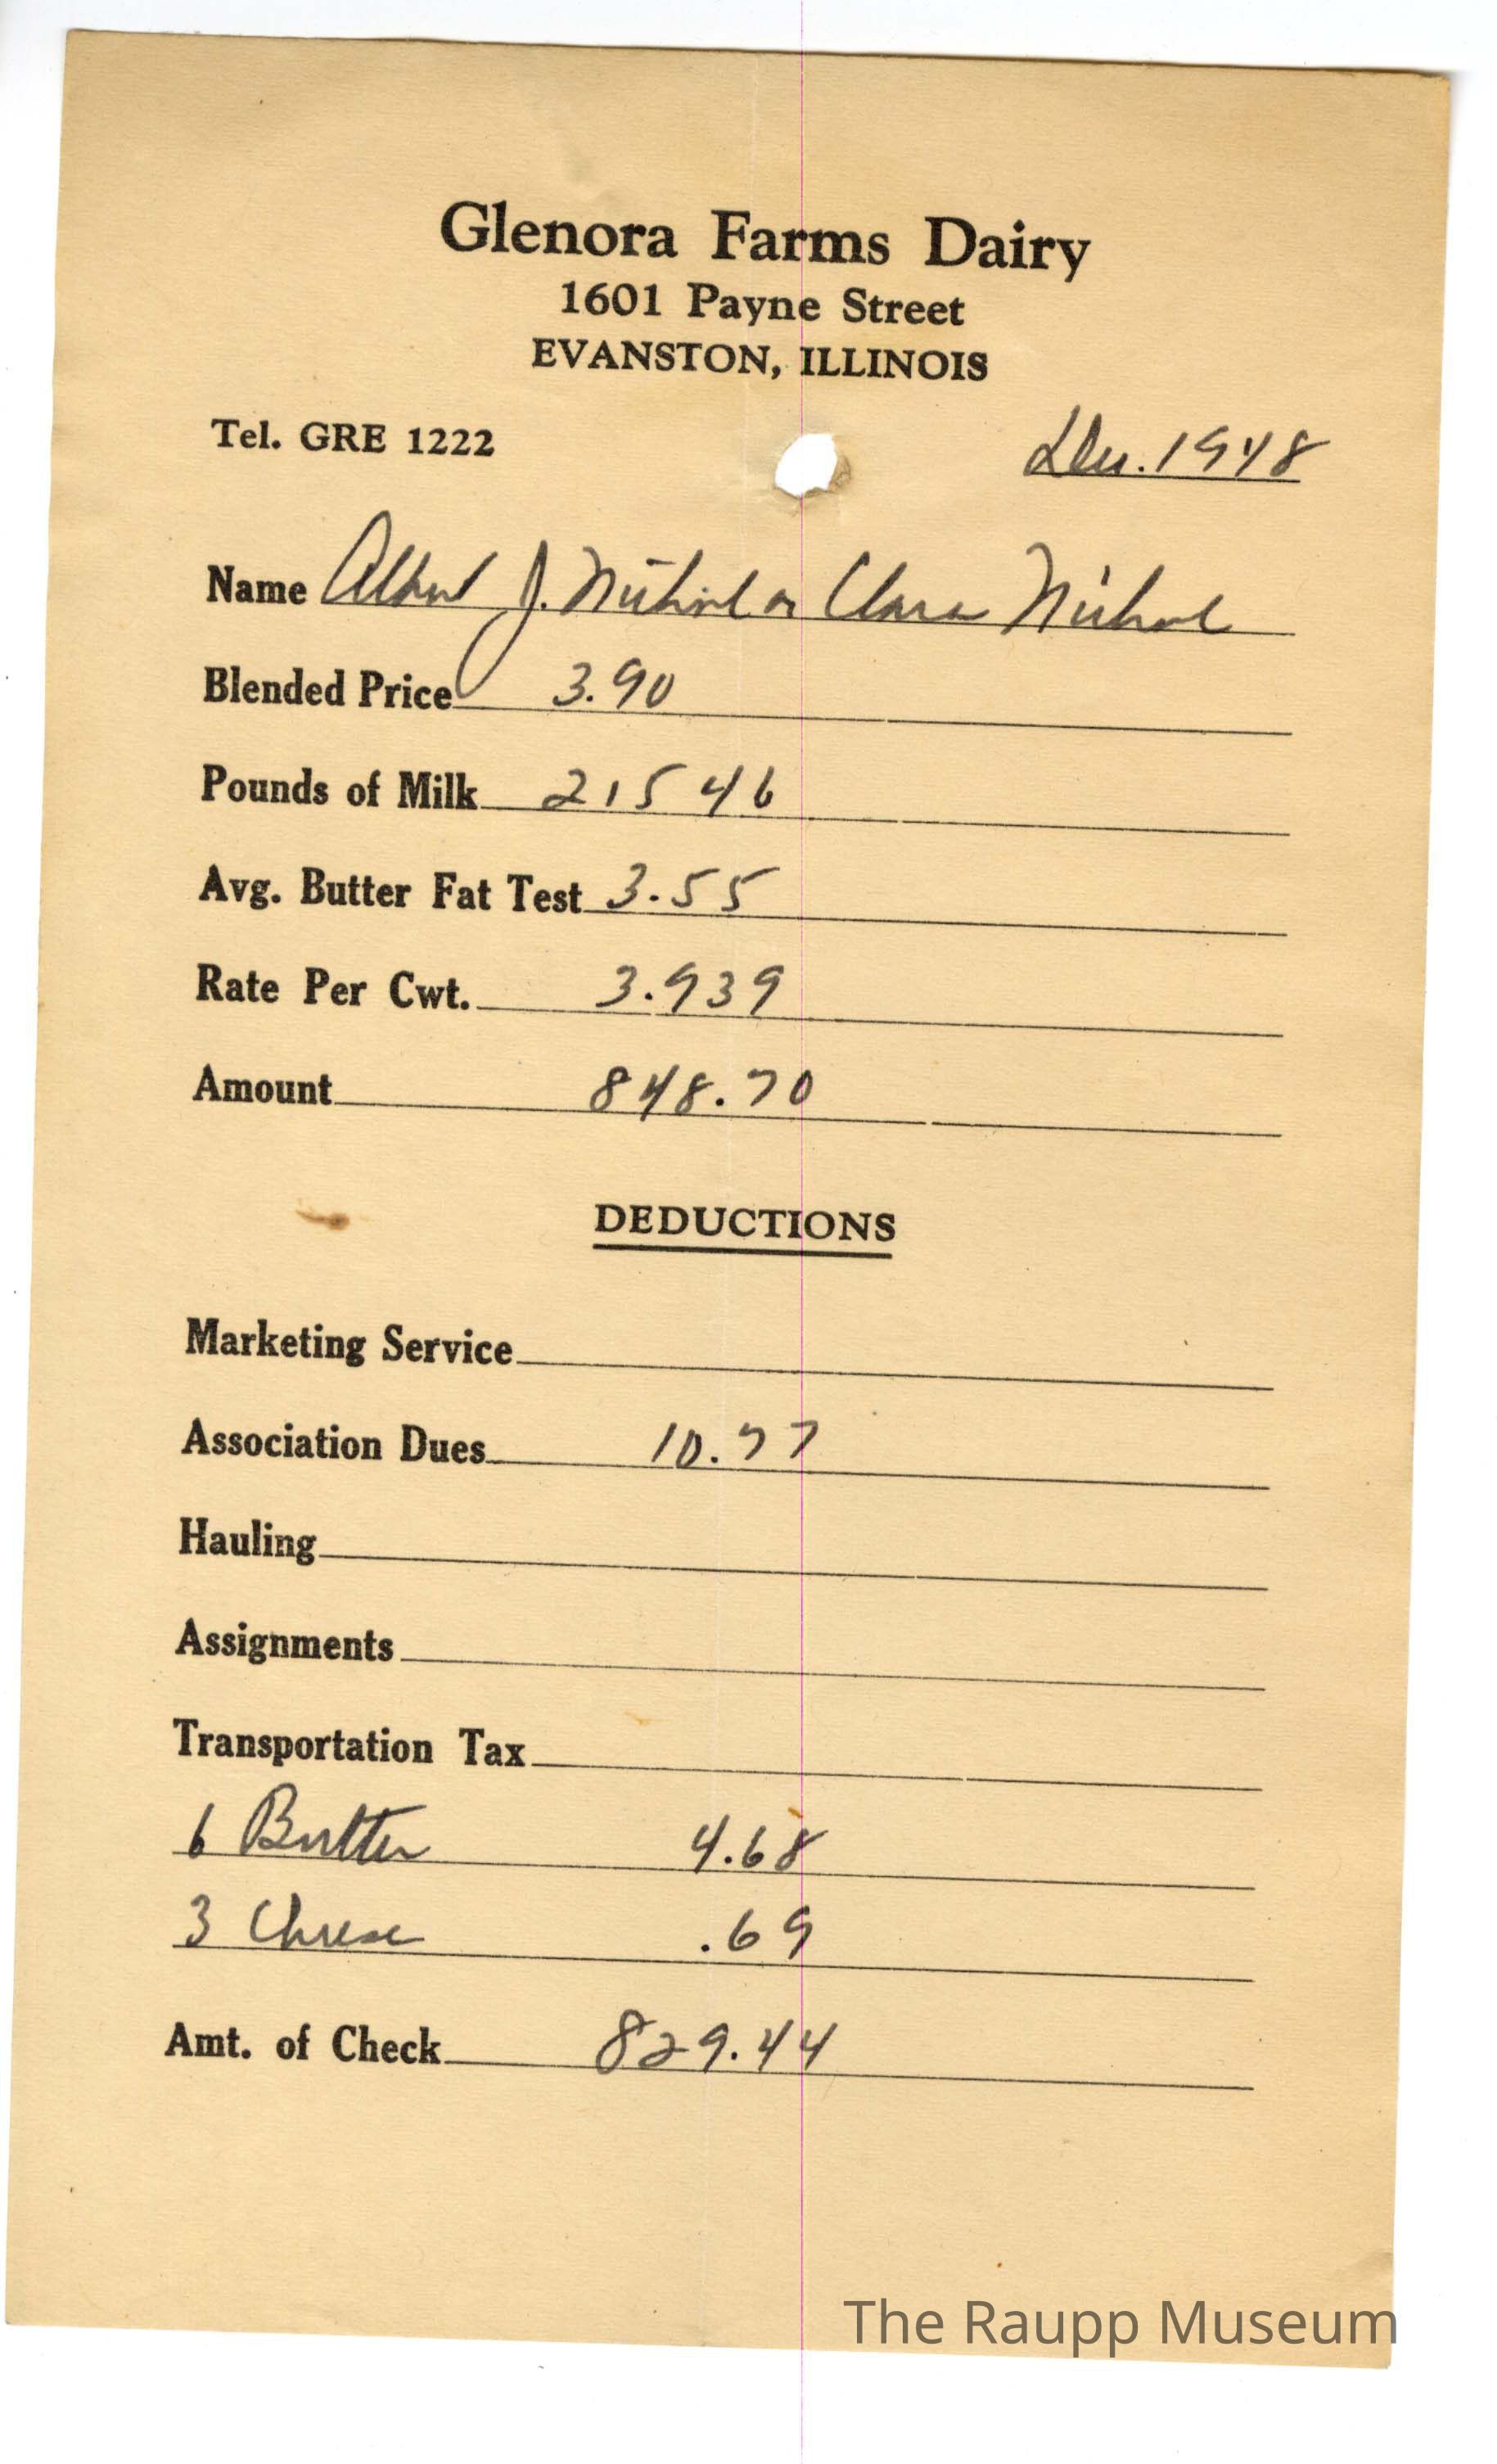 Glenora Farms Dairy
1601 Payne Street
EVANSTON, ILLINOIS
Tel. GRE 1222 Dec. 1948
Name Albert J. Nichol or Clara Nichol
Blended Price 3.90
Pounds of Milk 21546
Avg. Butter Fat Test 3.55
Rate Per Cwt. 3.939
Amount 848.70
DEDUCTIONS
Marketing Service
Association Dues 10.77
Hauling
Assignments
Transportation Tax
6 Butter 4.68
3 Cheese .69
Amt. of Check 829.44
The Raupp Museum